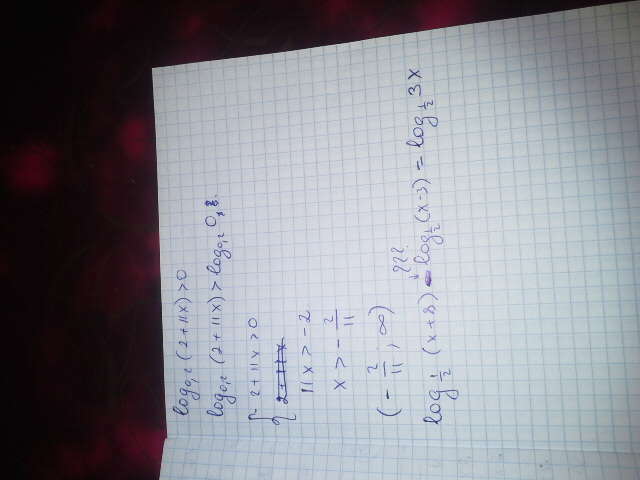 log₀,₂ (2+11x)>0
log₀,₂ (2+11x)>log₀,₂ 0,
{ 2+11x>0
11x>-2
x>-2/11
(-2/11; ∞)
???
log½ (x+8) - log½(x-3) = log½ 3x